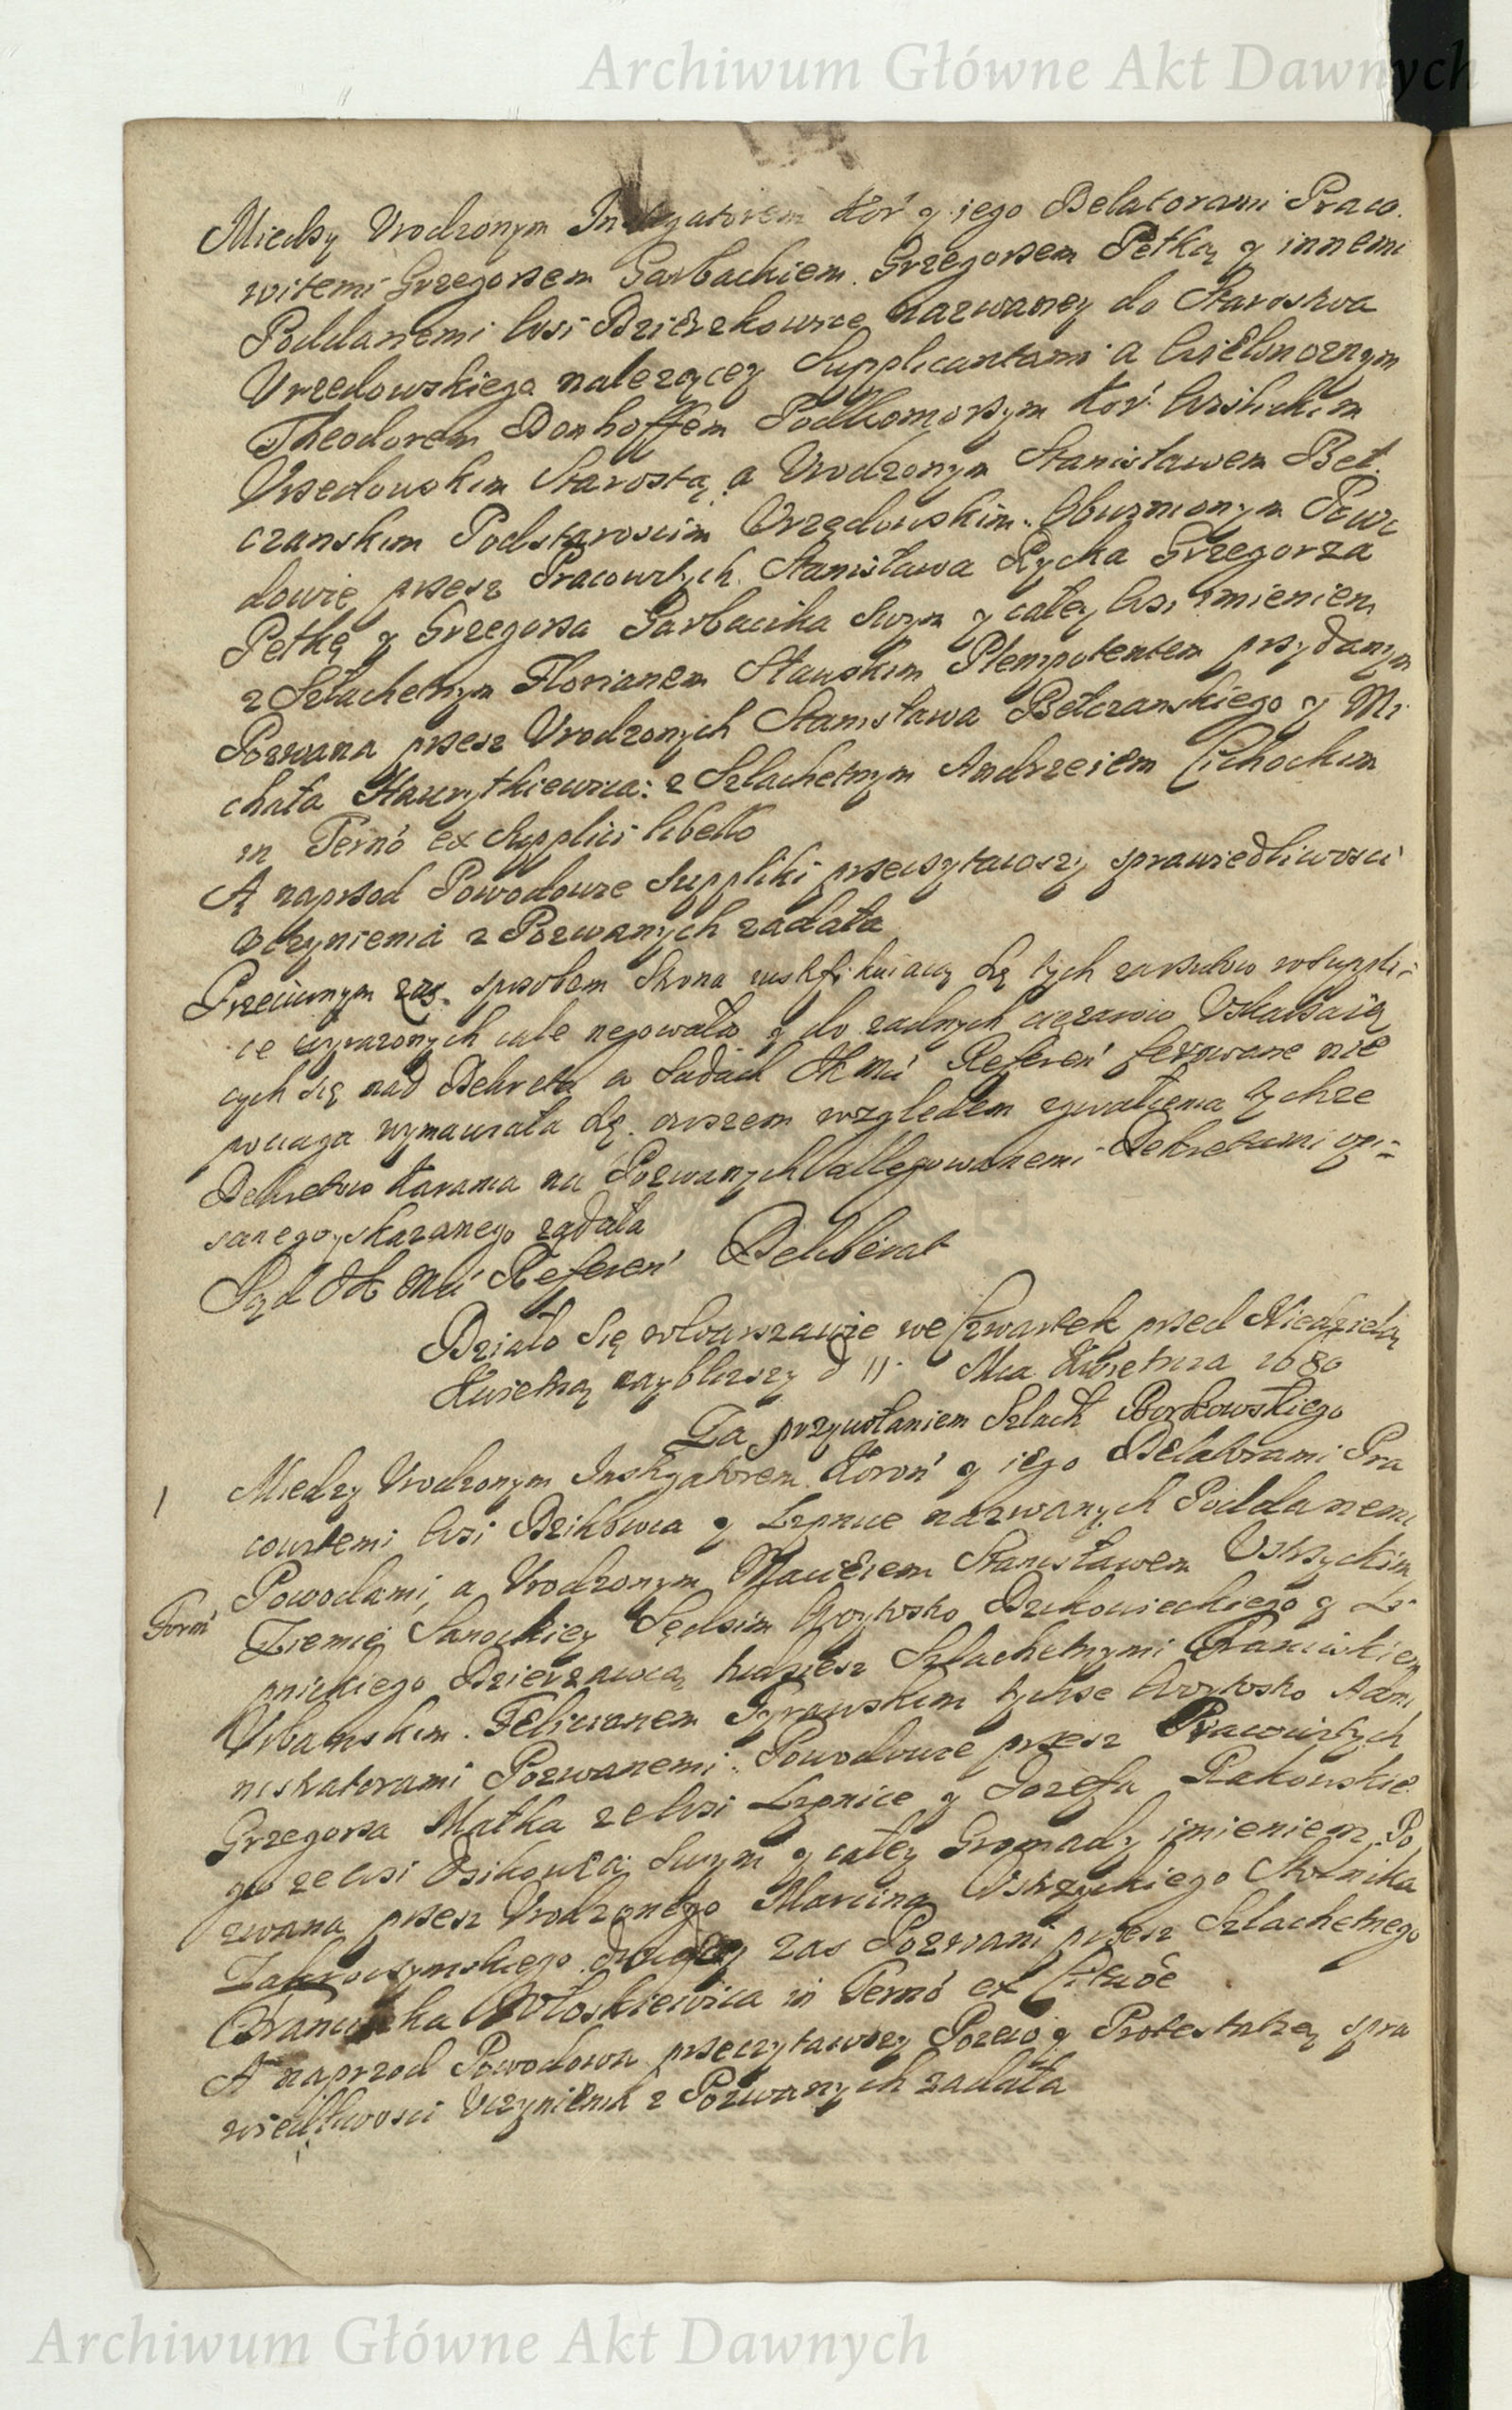 Archiwum Główne Akt Dawnych
Miedzy Urodzonym Instigatorem Kor y iego Delatorami Praco
witemi Grzegorzem Garbackiem Grzegorzem Petką y innemi
Poddanemi Wsi Dzierzkowice nazwaney do Starostwa
Urzedowskiego nalezącey Supplicantami a Wielmoznym
Theodorem Donhoffem Podkomorzym Kor Wislickim
Urzedowskim Starostą, a Urodzonym Stanisławem Beł
czanskim Podstaroscim Urzędowskim Obwznionym Powo
dowie przesz Pracowitych Stanisława Rycka Grzegorza
Petkę y Grzegorza Garbacika Swym y całey Wsi imieniem
z Szlachetnym Florianem Stauskim Plenipotentem przydanym
Pozwana przesz Urodzonych Stanisława Bełczanskiego y Mi
chała Hawrytkiewica: z Szlachetnym Andrzeiem Cichockim
in Termo ex Supplici libello
A naprzod Powodowie Suppliki przeczytawszy sprawiedliwosci
Uczynienia z Pozwanych ządała
Przeciwnym zas sposobem Strona iustifikuiacą się tych zarzutow w Suppli
ce wyrazonych cale negowała y do zadnych cięzarow Uskarzaią
cych się nad Dekreta w Sądach JK Mci Referen ferowane nie
pociąga wymawiała się owszem względem zgwałcenia tychze
Dekretow karania na Pozwanych allegowanemi Dekretami opi
sanego y skazanego ządała
Sąd JK Mci Referen Deliberat
Działo się w Warszawie we Czwartek przed Niedzielą
Kwietną nayblizszy d 11 Mca Kwietnia 1680
Za przywołaniem Szlach Borkowskiego
1 Miedzy Urodzonym Instigatorem Koron y iego Delatorami Pra
cowitemi Wsi Dzikowca y Lipnice nazwanych Poddanemi
Powodami, a Urodzonym Macieiem Stanisławem Ustrzyckim
Ziemie Sanockiey Sędzim Woytowstw Dzikowieckiego y Li
pnickiego Dzierzawcą tudziesz Szlachetnymi Franciszkiem
Urbanskim Felicianem Tyrawskim tychze Woytowstw Admi
nistratorami Pozwanemi. Powodowie przesz Pracowitych
Grzegorza Matka ze Wsi Lipnice y Jozefa Rakowskie
go ze Wsi Dzikowca Swym y całey Gromady imieniem Po
zwana przesz Urodzonego Marcina Ustrzyckiego Stolnika
Zakroczymskiego zas Pozwani przesz Szlachetnego
Franciszka Wołoskiewica in Termo ex Citaoe
A naprzod Powodowa przeczytawszy Pozew y Protestatią spra
wiedliwosci Uczynienia z Pozwanych ządała
Archiwum Główne Akt Dawnych